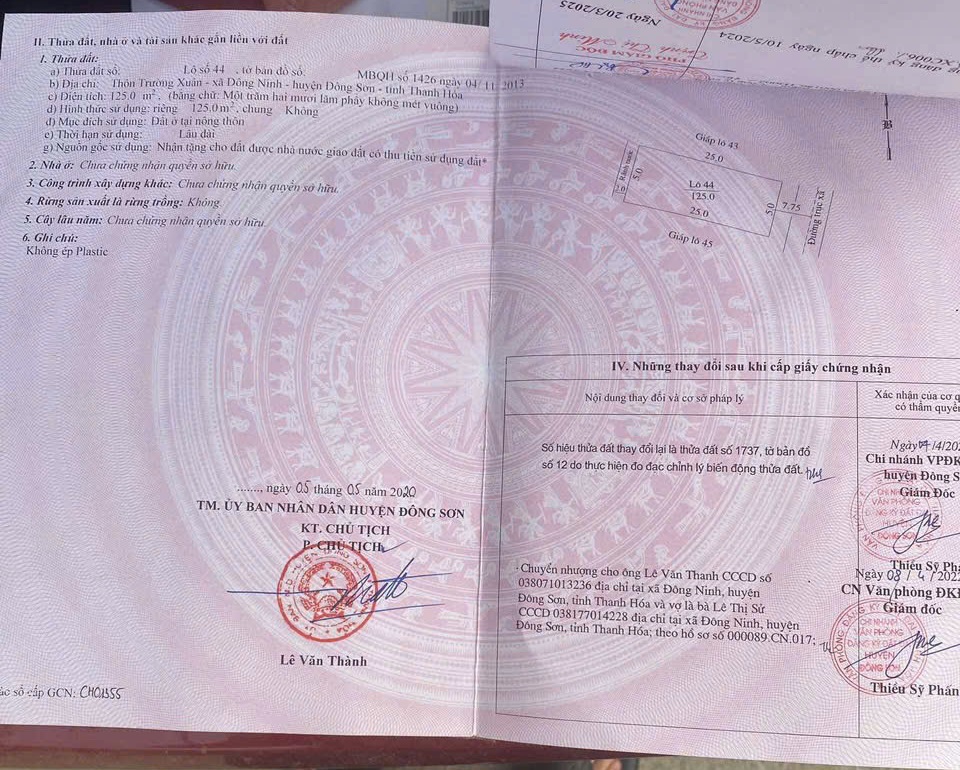 II. Thửa đất, nhà ở và tài sản khác gắn liền với đất
1. Thửa đất:
a) Thửa đất số: Lô số 44 , tờ bản đồ số: MBQH số 1426 ngày 04/11/2013
b) Địa chỉ: Thôn Trường Xuân - xã Đông Ninh - huyện Đông Sơn - tỉnh Thanh Hóa
c) Diện tích: 125.0 m², (bằng chữ: Một trăm hai mươi lăm phẩy không mét vuông)
d) Hình thức sử dụng: riêng 125.0 m², chung Không
đ) Mục đích sử dụng: Đất ở tại nông thôn
e) Thời hạn sử dụng: Lâu dài
g) Nguồn gốc sử dụng: Nhận tặng cho đất được nhà nước giao đất có thu tiền sử dụng đất*
2. Nhà ở: Chưa chứng nhận quyền sở hữu.
3. Công trình xây dựng khác: Chưa chứng nhận quyền sở hữu.
4. Rừng sản xuất là rừng trồng: Không.
5. Cây lâu năm: Chưa chứng nhận quyền sở hữu
6. Ghi chú:
Không ép Plastic
........, ngày 05 tháng 05 năm 2020
TM. ỦY BAN NHÂN DÂN HUYỆN ĐÔNG SƠN
KT. CHỦ TỊCH
P. CHỦ TỊCH
Lê Văn Thành
số cấp GCN: CH01355
ngày 10/5/2024
Ngày 20/3/2025
PHÓ GIÁM ĐỐC
B
Giáp lô 43
25.0
Rãnh nước
5.0
Lô 44
125.0
25.0
5.0
7.75
Đường trục xã
Giáp lô 45
IV. Những thay đổi sau khi cấp giấy chứng nhận
Nội dung thay đổi và cơ sở pháp lý
Xác nhận của cơ q
có thẩm quyề
Số hiệu thửa đất thay đổi lại là thửa đất số 1737, tờ bản đồ
số 12 do thực hiện đo đạc chỉnh lý biến động thửa đất.
Chi nhánh VPĐK
huyện Đông S
Giám Đốc
Thiều Sỹ Phấ
- Chuyển nhượng cho ông Lê Văn Thanh CCCD số
038071013236 địa chỉ tại xã Đông Ninh, huyện
Đông Sơn, tỉnh Thanh Hóa và vợ là bà Lê Thị Sử
CCCD 038177014228 địa chỉ tại xã Đông Ninh, huyện
Đông Sơn, tỉnh Thanh Hóa; theo hồ sơ số 000089.CN.017;
Ngày 08 / 4 /202
CN Văn phòng ĐKĐ
Giám đốc
CHI NHÁNH
VĂN PHÒNG
ĐĂNG KÝ ĐẤT ĐAI
HUYỆN
ĐÔNG SƠN
Thiều Sỹ Phấn